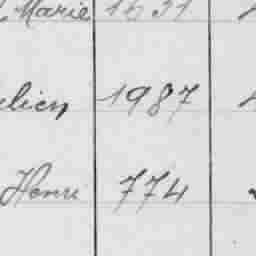 Marie 1631
lien 1987
Henri 774